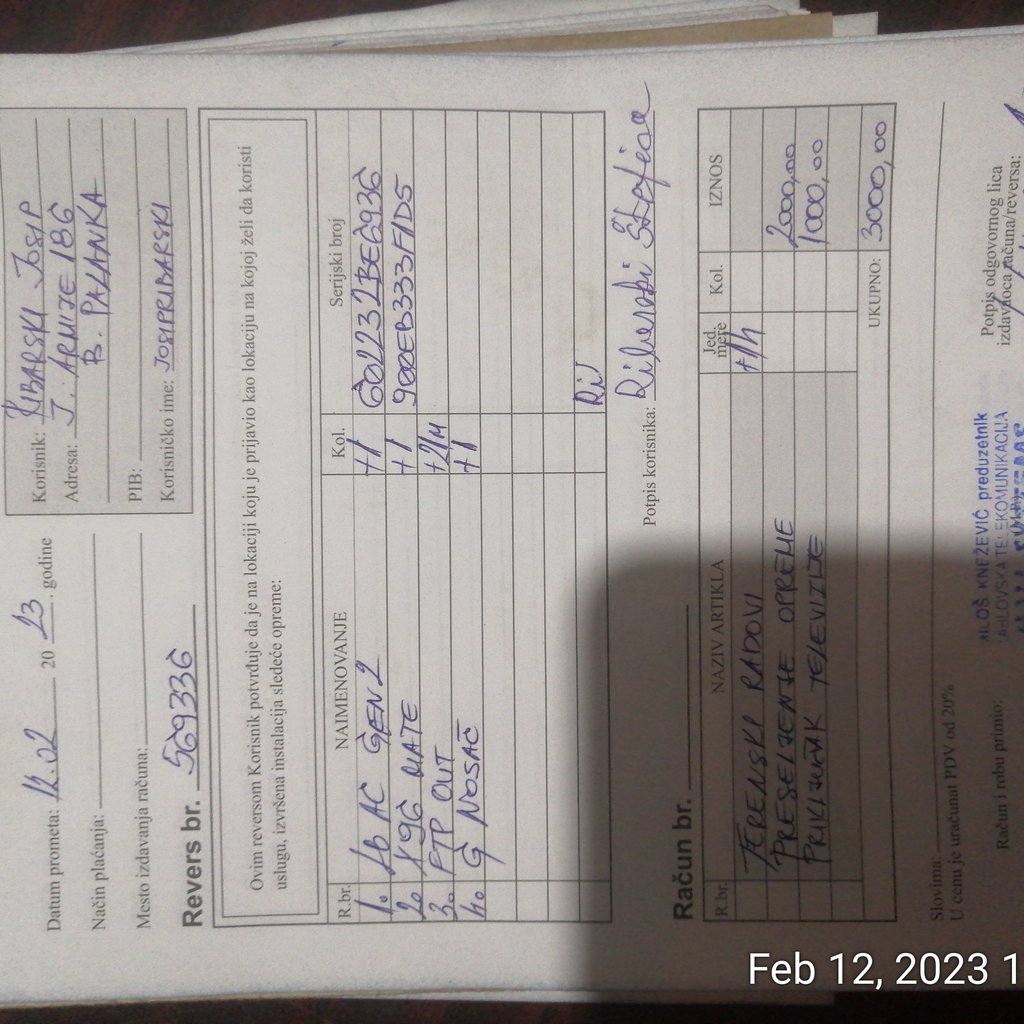 Datum prometa: 12.02 20 23. godine
Način plaćanja:
Mesto izdavanja računa:
Korisnik: RIBARSKI JOSIP
Adresa: J. ARMIJE 186
B. PALANKA
PIB:
Korisničko ime: JOSIPRIBARSKI
Revers br. 569336
Ovim reversom Korisnik potvrđuje da je na lokaciji koju je prijavio kao lokaciju na kojoj želi da koristi
uslugu, izvršena instalacija sledeće opreme:
R.br. NAIMENOVANJE Kol. Serijski broj
1. LB AC GEN2 +1 602232BE6936
2. X96 MATE +1 900EB333F1D5
3. FTP OUT +21M
4. G NOSAČ +1
Potpis korisnika: Ribarski
Račun br.
R.br. NAZIV ARTIKLA Jed. mere Kol. IZNOS
TERENSKI RADOVI +1h
PRESELJENJE OPREME 2000,00
PRIKLJUČAK TELEVIZIJE 1000,00
UKUPNO: 3000,00
Slovima:
U cenu je uračunat PDV od 20%
Račun i robu primio:
MILOŠ KNEŽEVIĆ preduzetnik
TELEKOMUNIKACIJA
Potpis odgovornog lica
izdavaoca računa/reversa:
Feb 12, 2023 1